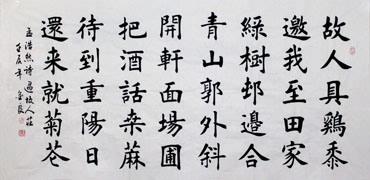 故人具鷄黍
邀我至田家
緑樹邨邊合
青山郭外斜
開軒面場圃
把酒話桒蔴
待到重陽日
還来就菊芲
孟浩然詩過故人莊
壬辰年